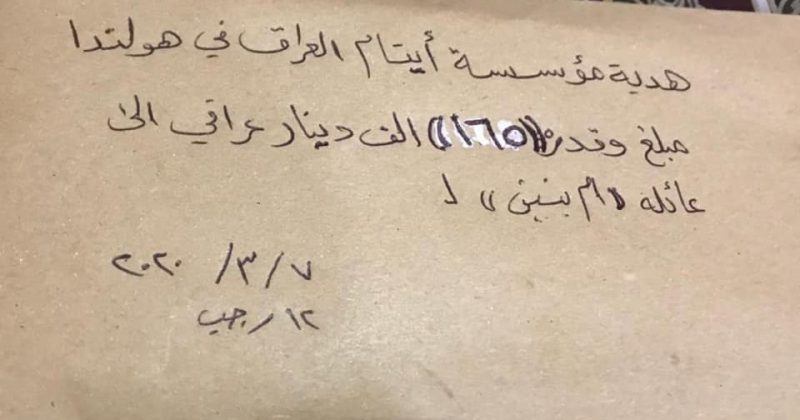 هدية مؤسسة أيتام العراق في هولندا
مبلغ وقدره ((١٦٥)) الف دينار عراقي الى
عائله «ام بنين»
٧ / ٣ / ٢٠٢٠
١٢ / رجب